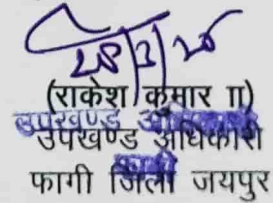 28/3/26
(राकेश कुमार II)
उपखण्ड अधिकारी
उपखण्ड अधिकारी
फागी जिला जयपुर